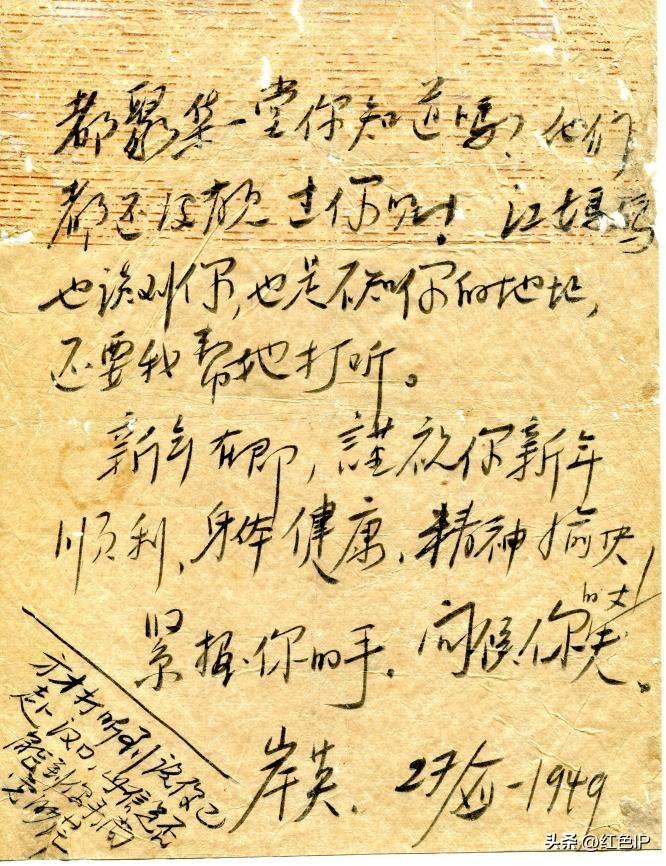 都聚集一堂你知道吗?他们
都还没有见过你呢!江妈
也谈到你,也是不知你的地址,
还要我帮她打听。
新年在即,謹祝你新年
顺利、身体健康、精神愉快!
的丈
紧握你的手。问候你夫。
岸英. 27/XII-1949
方才打听到说你已
赴汉口,此信是否
能到你手尚
头条@红色IP